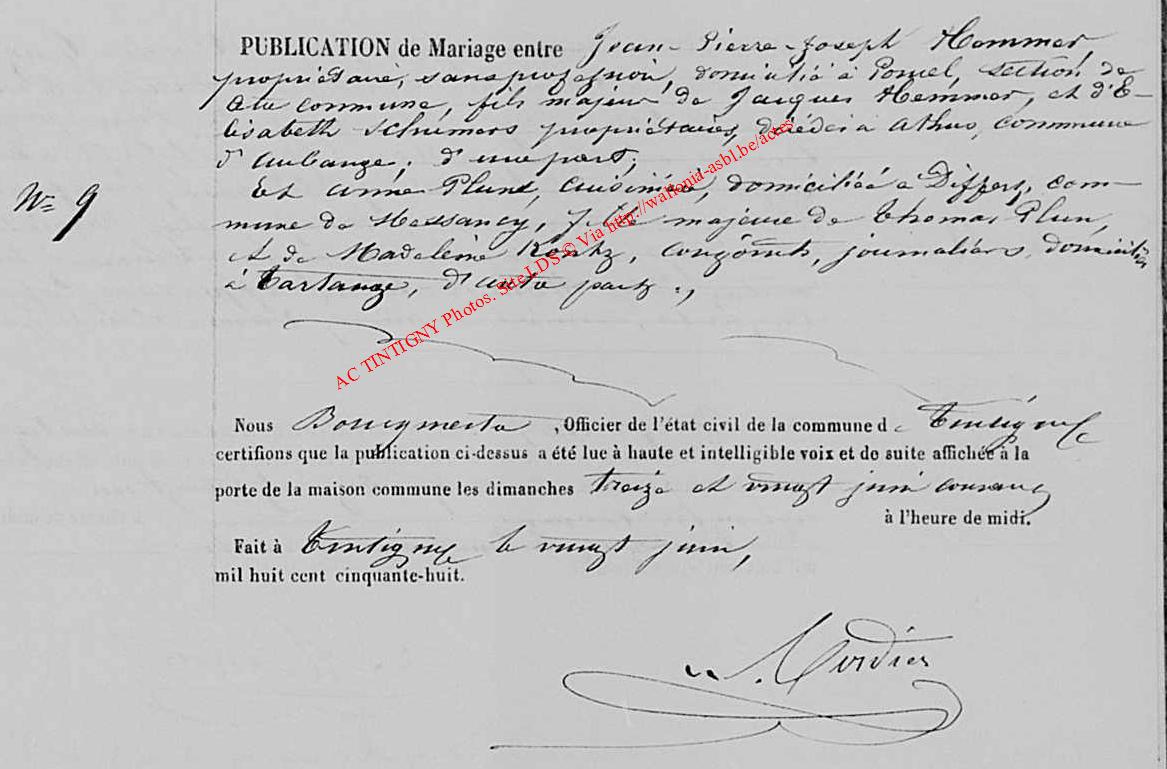 PUBLICATION de Mariage entre Jean-Pierre-Joseph Hemmer,
propriétaire, sans profession, domicilié à Poncel, section de
cette commune, fils majeur de Jacques Hemmer, et d'E-
lisabeth Schumers propriétaires, décédés à Athus, commune
d'Aubange, d'une part;
Nº 9
et Anne Plun, cuisinière, domiciliée à Differt, com-
mune de Messancy, fille majeure de Thomas Plun,
et de Madeleine, conjoints, journaliers, domiciliés
à Tartange, d'autre part.,
Nous, Officier de l'état civil de la commune de Tintigny
certifions que la publication ci-dessus a été lue à haute et intelligible voix et de suite affichée à la
porte de la maison commune les dimanches treize et vingt juin courant
à l'heure de midi.
Fait à Tintigny le vingt juin,
mil huit cent cinquante-huit.
AC TINTIGNY Photos. Site LDS © Via http://wallonia-asbl.be/actes